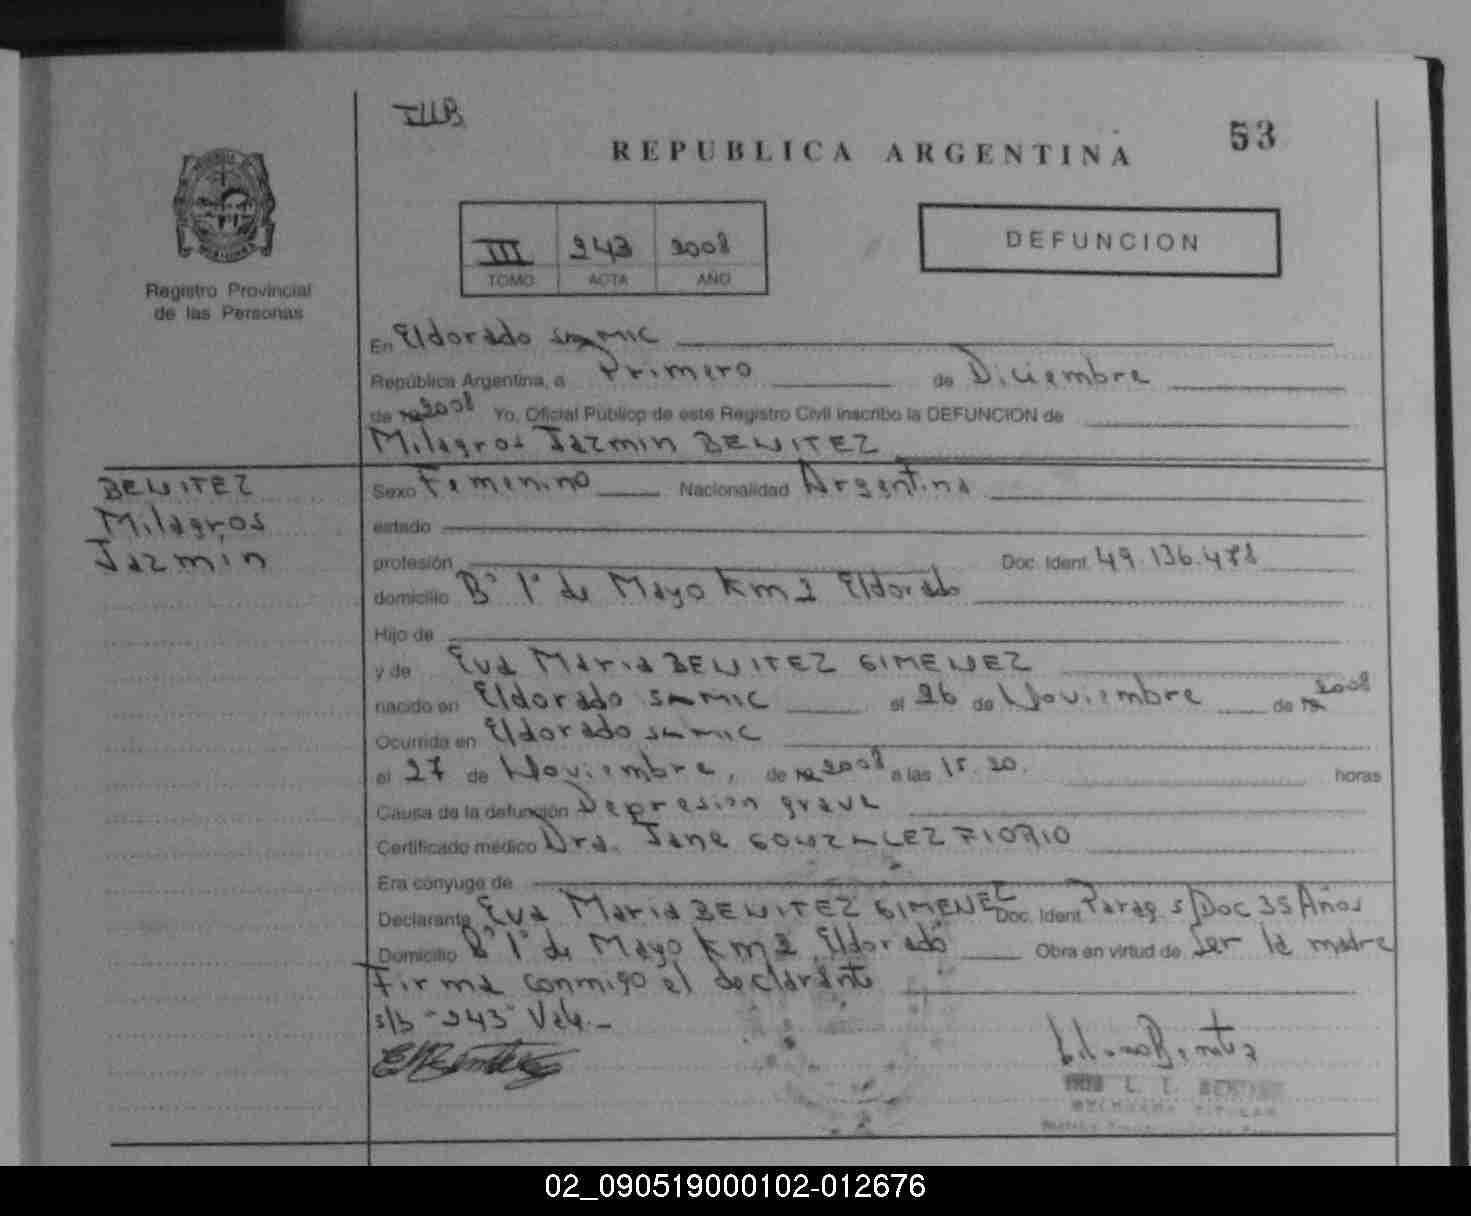 IIIB
53
REPUBLICA ARGENTINA
III 243 2008
TOMO ACTA AÑO
DEFUNCION
Registro Provincial
de las Personas
En Eldorado SAMIC
República Argentina, a Primero de Diciembre
de 2008 Yo, Oficial Público de este Registro Civil inscribo la DEFUNCION de
Milagros Jazmin BENITEZ
BENITEZ
Milagros
Jazmin
Sexo Femenino Nacionalidad Argentina
estado
profesión Doc. Ident. 49.136.478
domicilio B° 1° de Mayo Km 2 Eldorado
Hijo de
y de Eva Maria BENITEZ GIMENEZ
nacido en Eldorado SAMIC el 26 de Noviembre de 2008
Ocurrida en Eldorado SAMIC
el 27 de Noviembre, de 2008 a las 15.20. horas
Causa de la defunción Depresion grave
Certificado médico Dra. Jane GONZALEZ FIORIO
Era cónyuge de
Declarante Eva Maria BENITEZ GIMENEZ Doc. Ident. Parag. s/Doc 35 Años
Domicilio B° 1° de Mayo Km 2 Eldorado Obra en virtud de Ser la madre
Firma conmigo el declarante
s/b "243" Vale.-
02_090519000102-012676